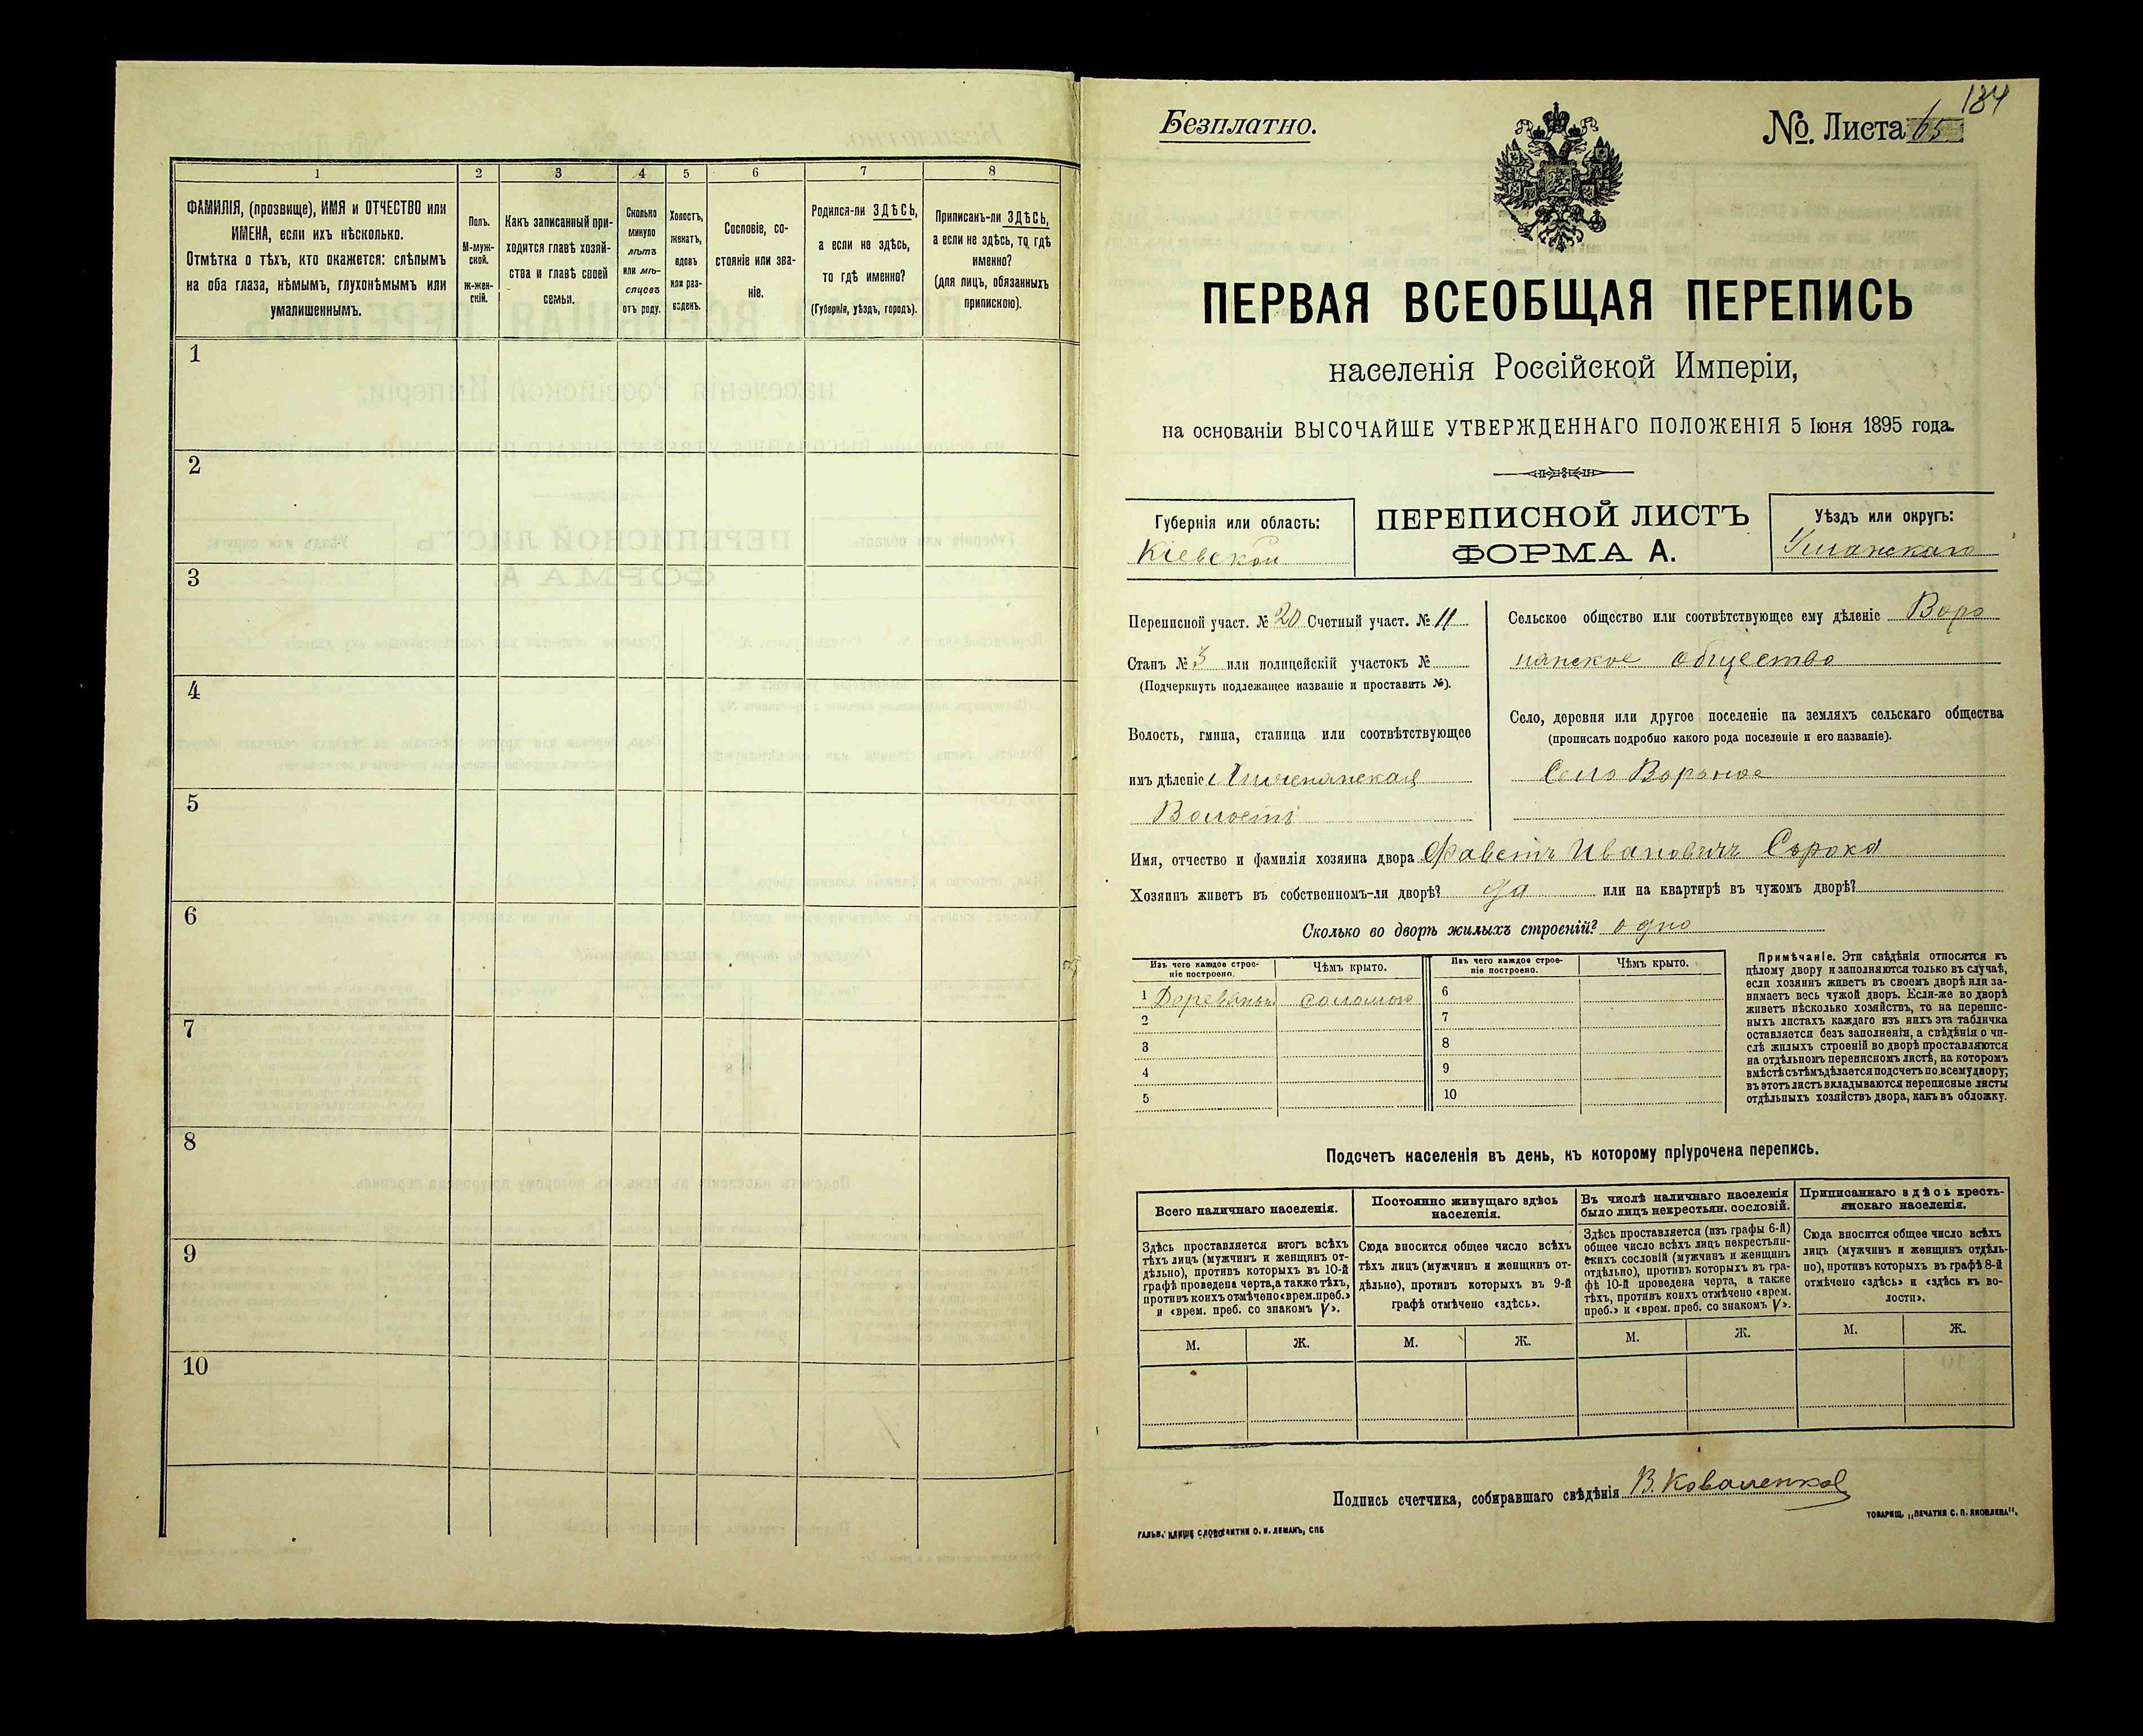 1
2
3
4
5
6
7
8
ФАМИЛІЯ, (прозвище), ИМЯ и ОТЧЕСТВО или
ИМЕНА, если ихъ нѣсколько.
Отмѣтка о тѣхъ, кто окажется: слѣпымъ
на оба глаза, нѣмымъ, глухонѣмымъ или
умалишеннымъ.
Полъ.
М-муж-
ской.
Ж-жен-
скій.
Какъ записанный при-
ходится главѣ хозяй-
ства и главѣ своей
семьи.
Сколько
минуло
лѣтъ
или мѣ-
сяцевъ
отъ роду.
Холостъ,
женатъ,
вдовъ
или раз-
веденъ.
Сословіе, со-
стояніе или зва-
ніе.
Родился-ли ЗДѢСЬ,
а если не здѣсь,
то гдѣ именно?
(Губернія, уѣздъ, городъ).
Приписанъ-ли ЗДѢСЬ,
а если не здѣсь, то гдѣ
именно?
(для лицъ, обязанныхъ
припискою).
1
2
3
4
5
6
7
8
9
10
184
Безплатно.
№. Листа 65
ПЕРВАЯ ВСЕОБЩАЯ ПЕРЕПИСЬ
населенія Россійской Имперіи,
на основаніи ВЫСОЧАЙШЕ УТВЕРЖДЕННАГО ПОЛОЖЕНІЯ 5 Іюня 1895 года.
Губернія или область:
Кіевской
ПЕРЕПИСНОЙ ЛИСТЪ
ФОРМА А.
Уѣздъ или округъ:
Уманскаго
Переписной участ. № 20 Счетный участ. № 11
Станъ № 3 или полицейскій участокъ №
(Подчеркнуть подлежащее названіе и проставить №).
Волость, гмина, станица или соотвѣтствующее
имъ дѣленіе
Волость
Сельское общество или соотвѣтствующее ему дѣленіе Воро
нанское общество
Село, деревня или другое поселеніе на земляхъ сельскаго общества
(прописать подробно какого рода поселеніе и его названіе).
Село Вороное
Имя, отчество и фамилія хозяина двора Фавстъ Ивановичъ Сорока
Хозяинъ живетъ въ собственномъ-ли дворѣ? да или на квартирѣ въ чужомъ дворѣ?
Сколько во дворѣ жилыхъ строеній? одно
Изъ чего каждое строе-
ніе построено.
Чѣмъ крыто.
Изъ чего каждое строе-
ніе построено.
Чѣмъ крыто.
1 соломою
2
3
4
5
6
7
8
9
10
Примѣчаніе. Эти свѣдѣнія относятся къ
цѣлому двору и заполняются только въ случаѣ,
если хозяинъ живетъ въ своемъ дворѣ или за-
нимаетъ весь чужой дворъ. Если-же во дворѣ
живетъ нѣсколько хозяйствъ, то на перепис-
ныхъ листахъ каждаго изъ нихъ эта табличка
оставляется безъ заполненія, а свѣдѣнія о чи-
слѣ жилыхъ строеній во дворѣ проставляются
на отдѣльномъ переписномъ листѣ, на которомъ
вмѣстѣ съ тѣмъ дѣлается подсчетъ по всему двору;
въ этотъ листъ вкладываются переписные листы
отдѣльныхъ хозяйствъ двора, какъ въ обложку.
Подсчетъ населенія въ день, къ которому пріурочена перепись.
Всего наличнаго населенія.
Здѣсь проставляется итогъ всѣхъ
тѣхъ лицъ (мужчинъ и женщинъ от-
дѣльно), противъ которыхъ въ 10-й
графѣ проведена черта, а также тѣхъ,
противъ коихъ отмѣчено «врем. преб.»
и «врем. преб. со знакомъ V».
Постоянно живущаго здѣсь
населенія.
Сюда вносится общее число всѣхъ
тѣхъ лицъ (мужчинъ и женщинъ от-
дѣльно), противъ которыхъ въ 9-й
графѣ отмѣчено «здѣсь».
Въ числѣ наличнаго населенія
было лицъ некрестьян. сословій.
Здѣсь проставляется (изъ графы 6-й)
общее число всѣхъ лицъ некрестьян-
скихъ сословій (мужчинъ и женщинъ
отдѣльно), противъ которыхъ въ гра-
фѣ 10-й проведена черта, а также
тѣхъ, противъ коихъ отмѣчено «врем.
преб.» и «врем. преб. со знакомъ V».
Приписаннаго здѣсь кресть-
янскаго населенія.
Сюда вносится общее число всѣхъ
лицъ (мужчинъ и женщинъ отдѣль-
но), противъ которыхъ въ графѣ 8-й
отмѣчено «здѣсь» и «здѣсь къ во-
лости».
М. Ж. М. Ж. М. Ж. М. Ж.
Подпись счетчика, собиравшаго свѣдѣнія В. Коваленко
ГАЛЬВ. КЛИШЕ СЛОВОЛИТНИ О. И. ЛЕМАНЪ, СПБ
ТОВАРИЩ. „ПЕЧАТНЯ С. П. ЯКОВЛЕВА“.